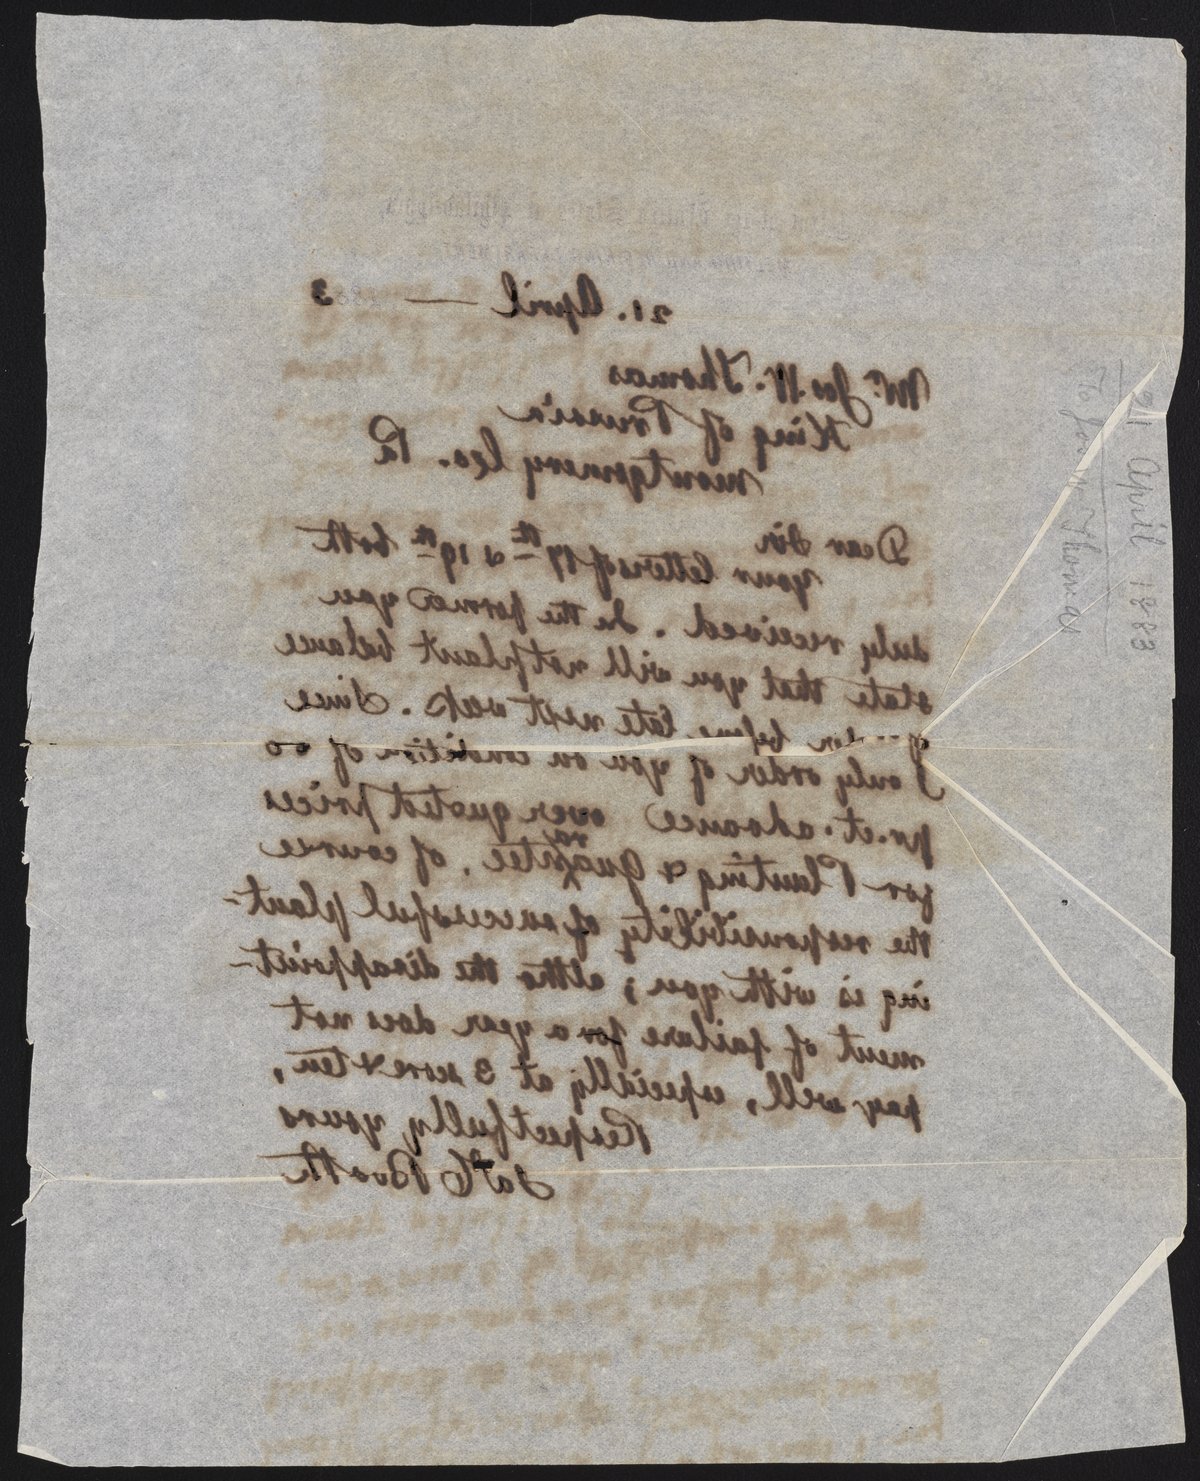 Mint of the United States at Philadelphia,
21. April — 1883
Mr. Jos. W. Thomas
King of Prussia
Montgomery Co. Pa
Dear Sir
Your letters of 17th & 19th both
duly received. In the former you
state that you will not plant balance
before late next week. Since
I only order of you on condition of 50
pr. ct. advance over quoted prices
for Planting & guarantee, of course
the responsibility of successful plant-
ing is with you; altho the disappoint-
ment of failure for a year does not
pay well, especially at 3 score & ten,
Respectfully yours
Jas C Booth
21 April 1883
To Jos W Thomas